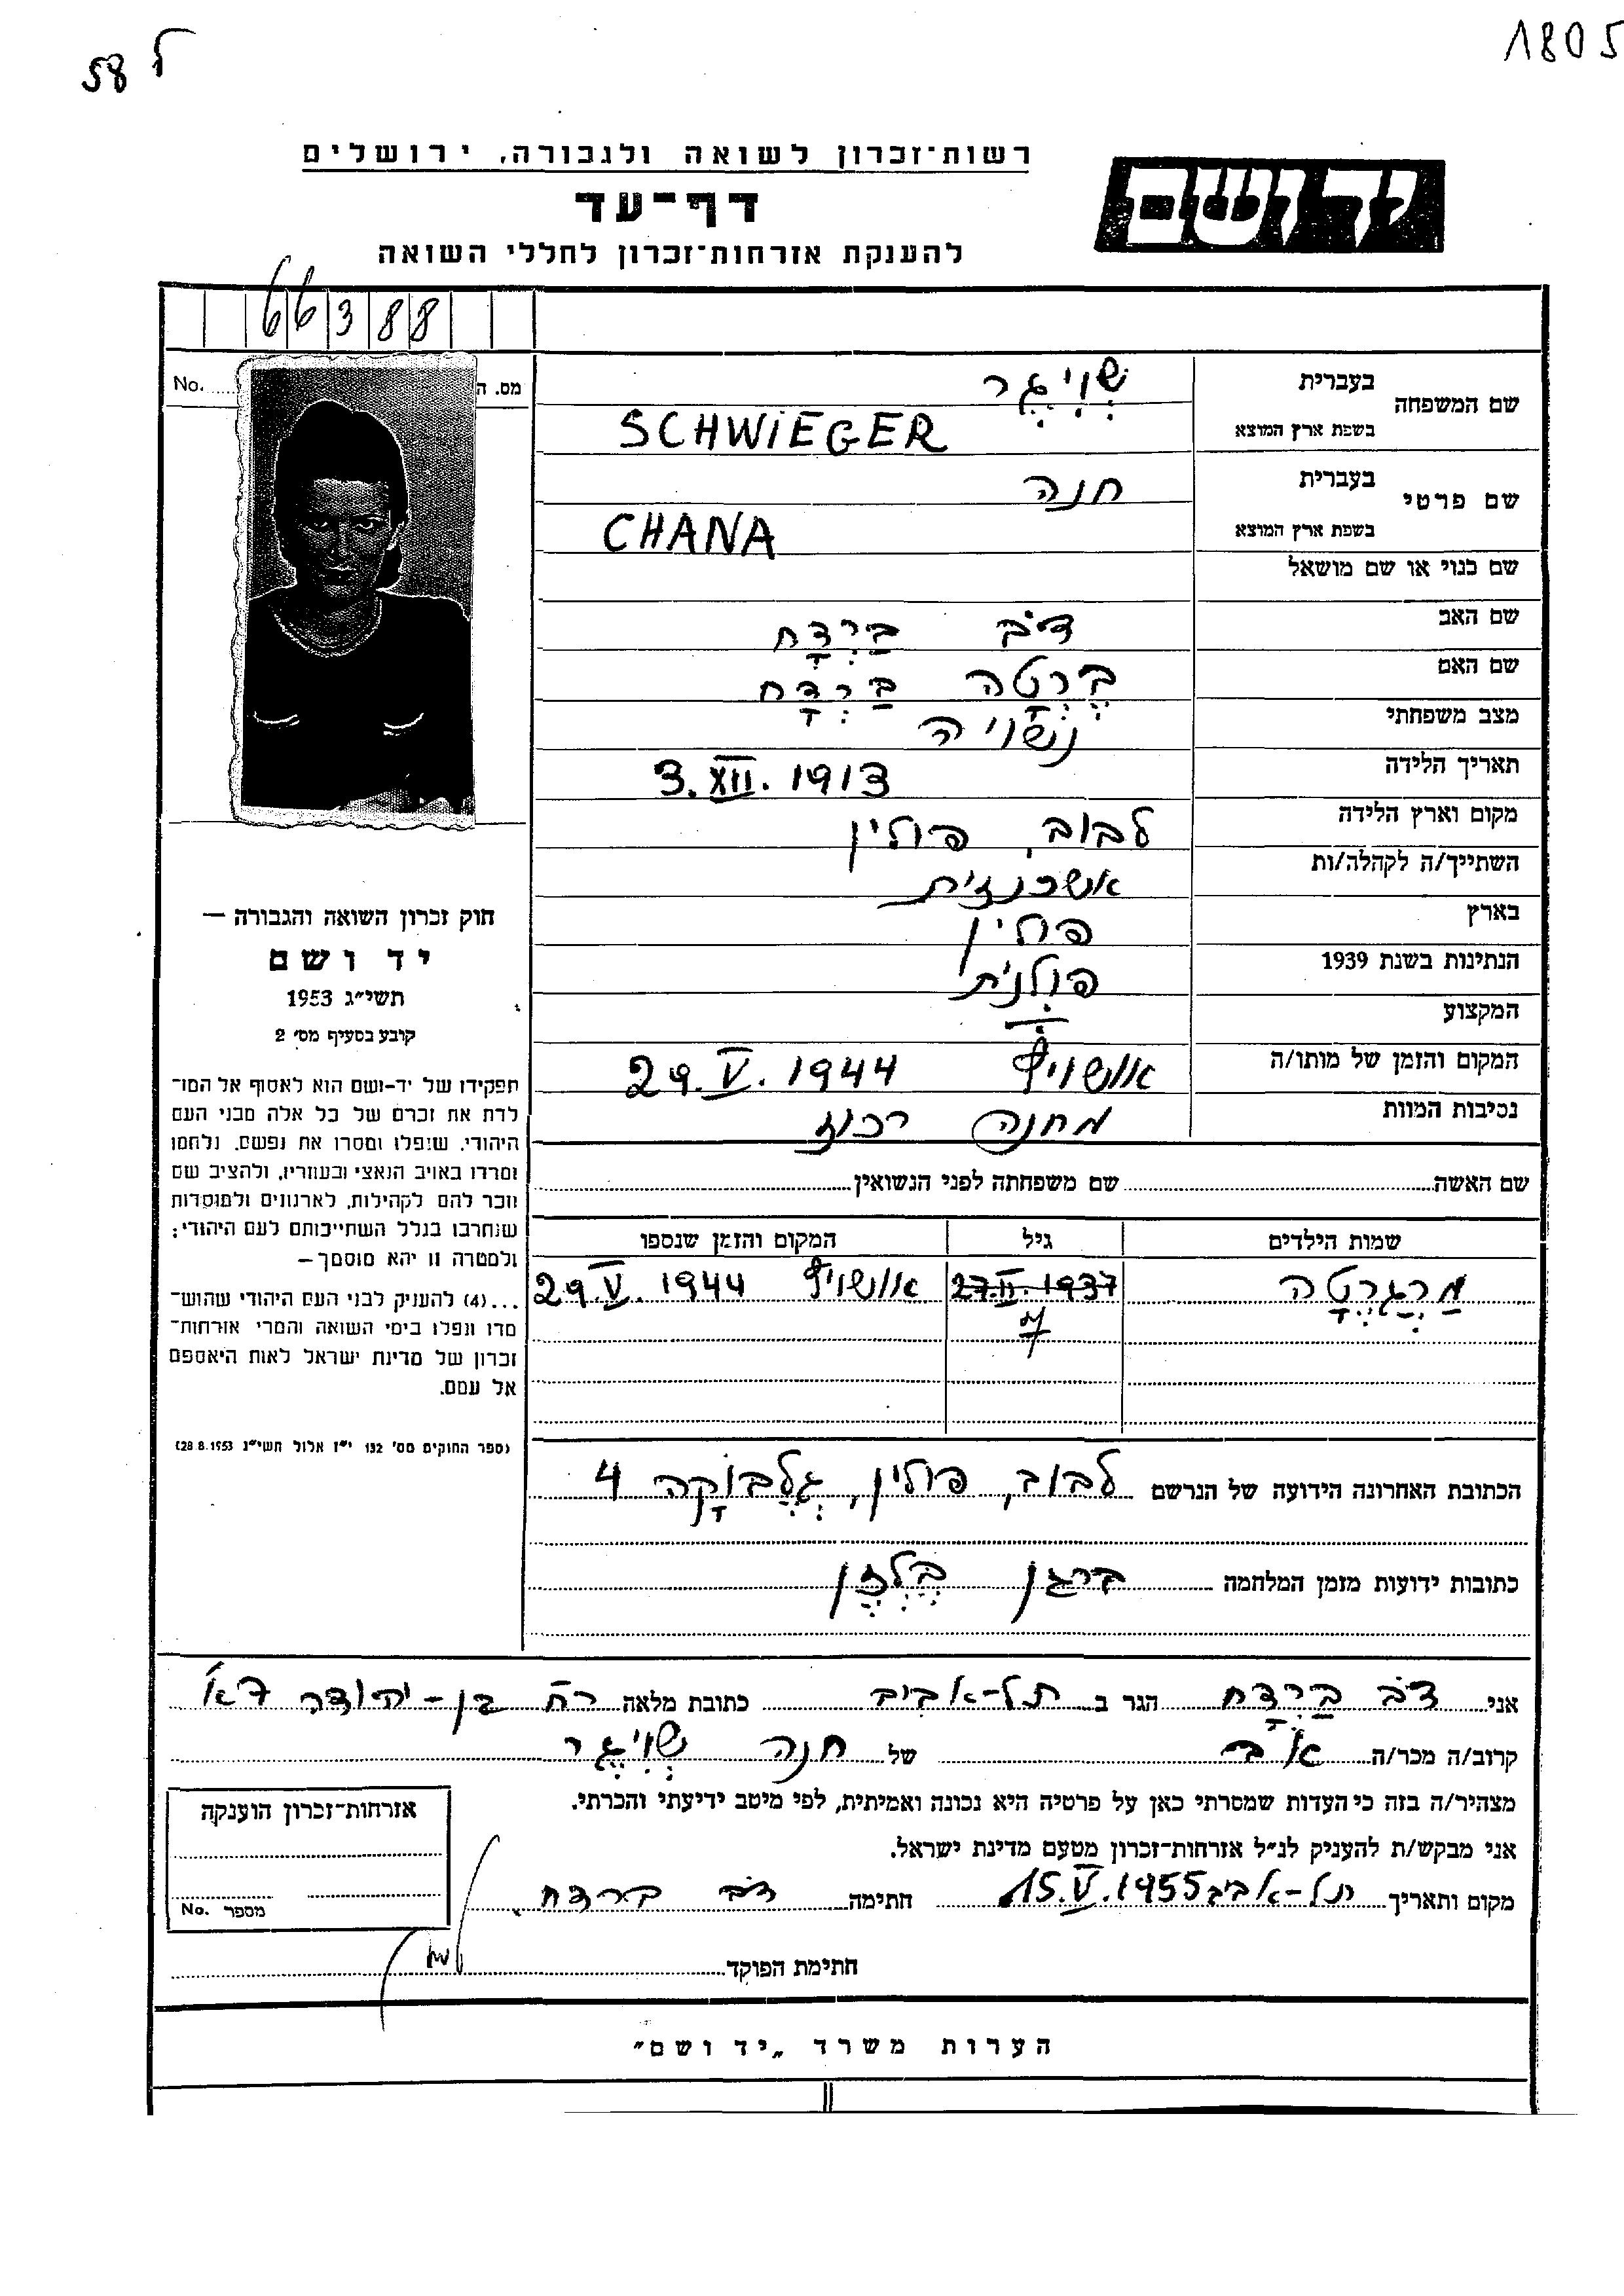 58 ל
1805
רשות־זכרון לשואה ולגבורה, ירושלים
יד ושם
דף־עד
להענקת אזרחות־זכרון לחללי השואה
66388
No. מס. ה
שם המשפחה
בעברית שְׁוִיגֶר
בשפת ארץ המוצא SCHWIEGER
שם פרטי
בעברית חנה
בשפת ארץ המוצא CHANA
שם כנוי או שם מושאל
שם האב דב בַּרְדָּח
שם האם בֶּרְטָה בַּרְדָּח
מצב משפחתי נשויה
תאריך הלידה 3.XII.1913
מקום וארץ הלידה לבוב, פולין
השתייך/ה לקהלה/ות אשכנזית
בארץ פולין
הנתינות בשנת 1939 פולנית
המקצוע
המקום והזמן של מותו/ה אושויץ 29.V.1944
נסיבות המוות מחנה רכוז
שם האשה שם משפחתה לפני הנשואין
שמות הילדים גיל המקום והזמן שנספו
מַרְגֶרֶטָה 27.II.1937 אושויץ 29.V.1944
7
חוק זכרון השואה והגבורה —
יד ושם
תשי״ג 1953
קובע בסעיף מס׳ 2
תפקידו של יד-ושם הוא לאסוף אל המו־
לדת את זכרם של כל אלה מבני העם
היהודי, שנפלו ומסרו את נפשם, נלחמו
ומרדו באויב הנאצי ובעוזריו, ולהציב שם
וזכר להם לקהילות, לארגונים ולמוסדות
שנחרבו בגלל השתייכותם לעם היהודי;
ולמטרה זו יהא מוסמך —
...(4) להעניק לבני העם היהודי שהוש־
מדו ונפלו בימי השואה והמרי אזרחות־
זכרון של מדינת ישראל לאות היאספם
אל עמם.
(ספר החוקים מס׳ 132 י״ז אלול תשי״ג 28.8.1953)
הכתובת האחרונה הידועה של הנרשם לבוב, פולין, גְלֶבּוֹקָה 4
כתובות ידועות מזמן המלחמה ברגן בֶּלְזֶן
אני דב בַּרְדָּח הגר ב תל-אביב כתובת מלאה רח בן-יהודה
קרוב/ה מכר/ה אב של חנה שְׁוִיגֶר
מצהיר/ה בזה כי העדות שמסרתי כאן על פרטיה היא נכונה ואמיתית, לפי מיטב ידיעתי והכרתי.
אני מבקש/ת להעניק לנ״ל אזרחות־זכרון מטעם מדינת ישראל.
מקום ותאריך תל-אביב 15.V.1955 חתימה דב ברדח
חתימת הפוקד
אזרחות־זכרון הוענקה
מספר No.
הערות משרד „יד ושם״